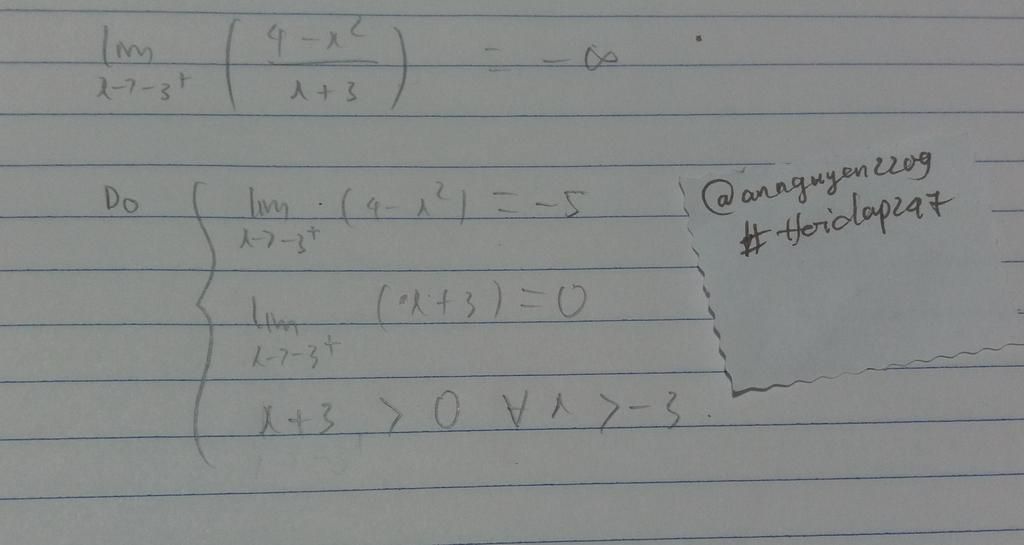 lim x→-3⁺ ( (4 - x²) / (x + 3) ) = -∞
Do
lim x→-3⁺ (4 - x²) = -5
lim x→-3⁺ (x + 3) = 0
x + 3 > 0 ∀ x > -3.
@annguyen2209
# Hoidap247